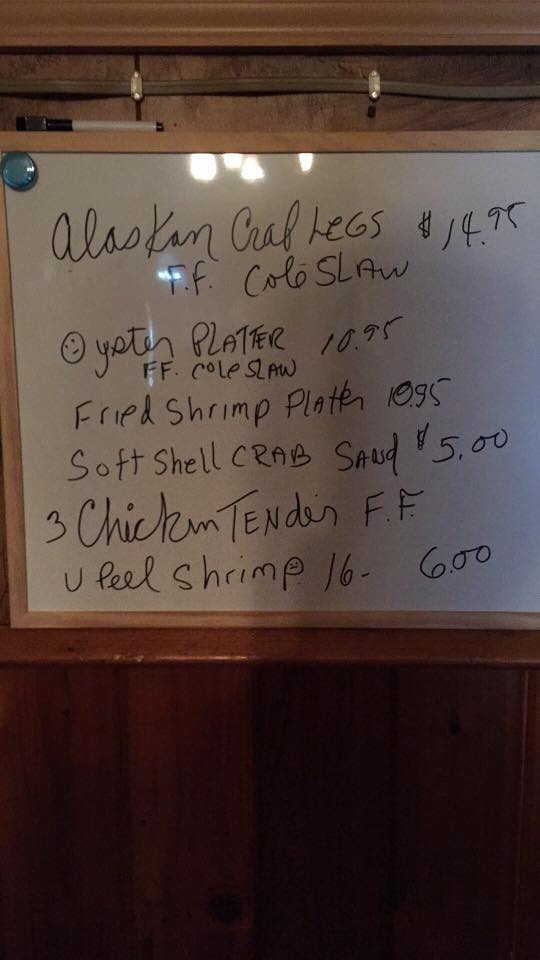 Alaskan Crab LEGS $14.95
F.F. Cole SLAW
Oyster PLATTER 10.95
FF. Cole SLAW
Fried Shrimp Platter 10.95
Soft Shell CRAB SAND $5.00
3 Chicken TENders F.F.
U Peel Shrimp 16- 6.00